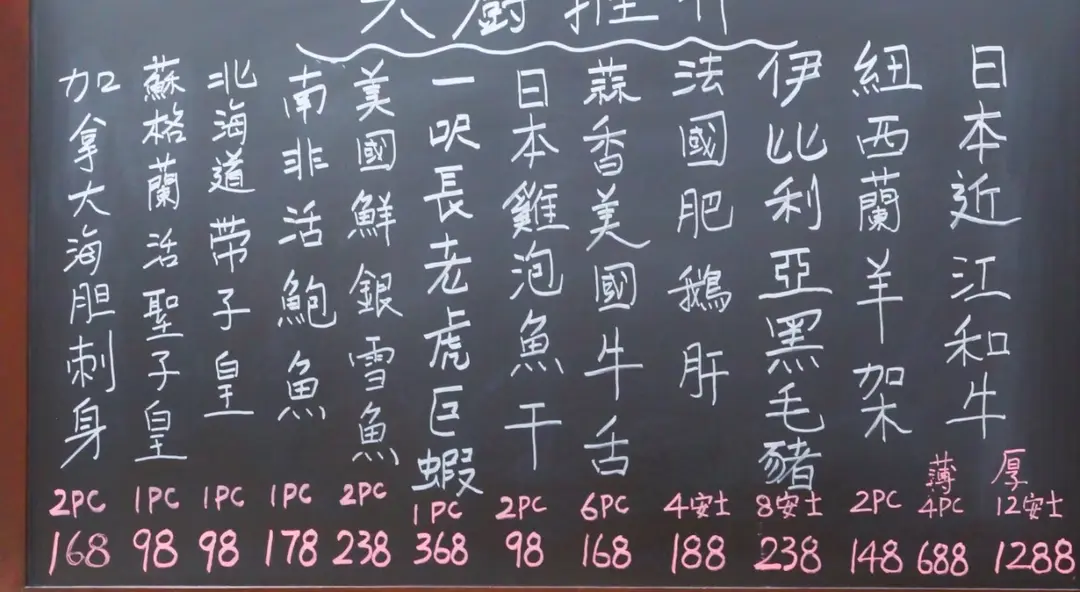 大廚推介
日本近江和牛
厚
12安士
1288
薄
4PC
688
紐西蘭羊架
2PC
148
伊比利亞黑毛豬
8安士
238
法國肥鵝肝
4安士
188
蒜香美國牛舌
6PC
168
日本雞泡魚干
2PC
98
一呎長老虎巨蝦
1PC
368
美國鮮銀雪魚
2PC
238
南非活鮑魚
1PC
178
北海道带子皇
1PC
98
蘇格蘭活聖子皇
1PC
98
加拿大海胆刺身
2PC
168